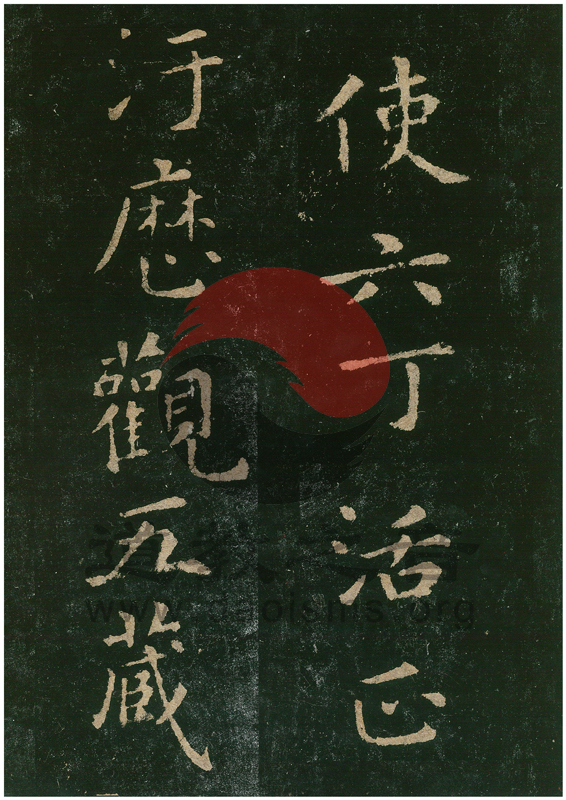 使六丁活正
汙歷觀五蔵
道教之音
www.daoisms.org